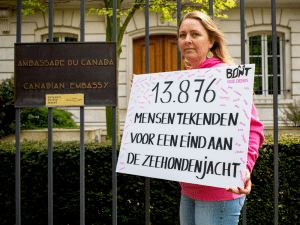 AMBASSADE DU CANADA
CANADIAN EMBASSY
BONT
VOOR DIEREN
13.876
MENSEN TEKENDEN
VOOR EEN EIND AAN
DE ZEEHONDENJACHT